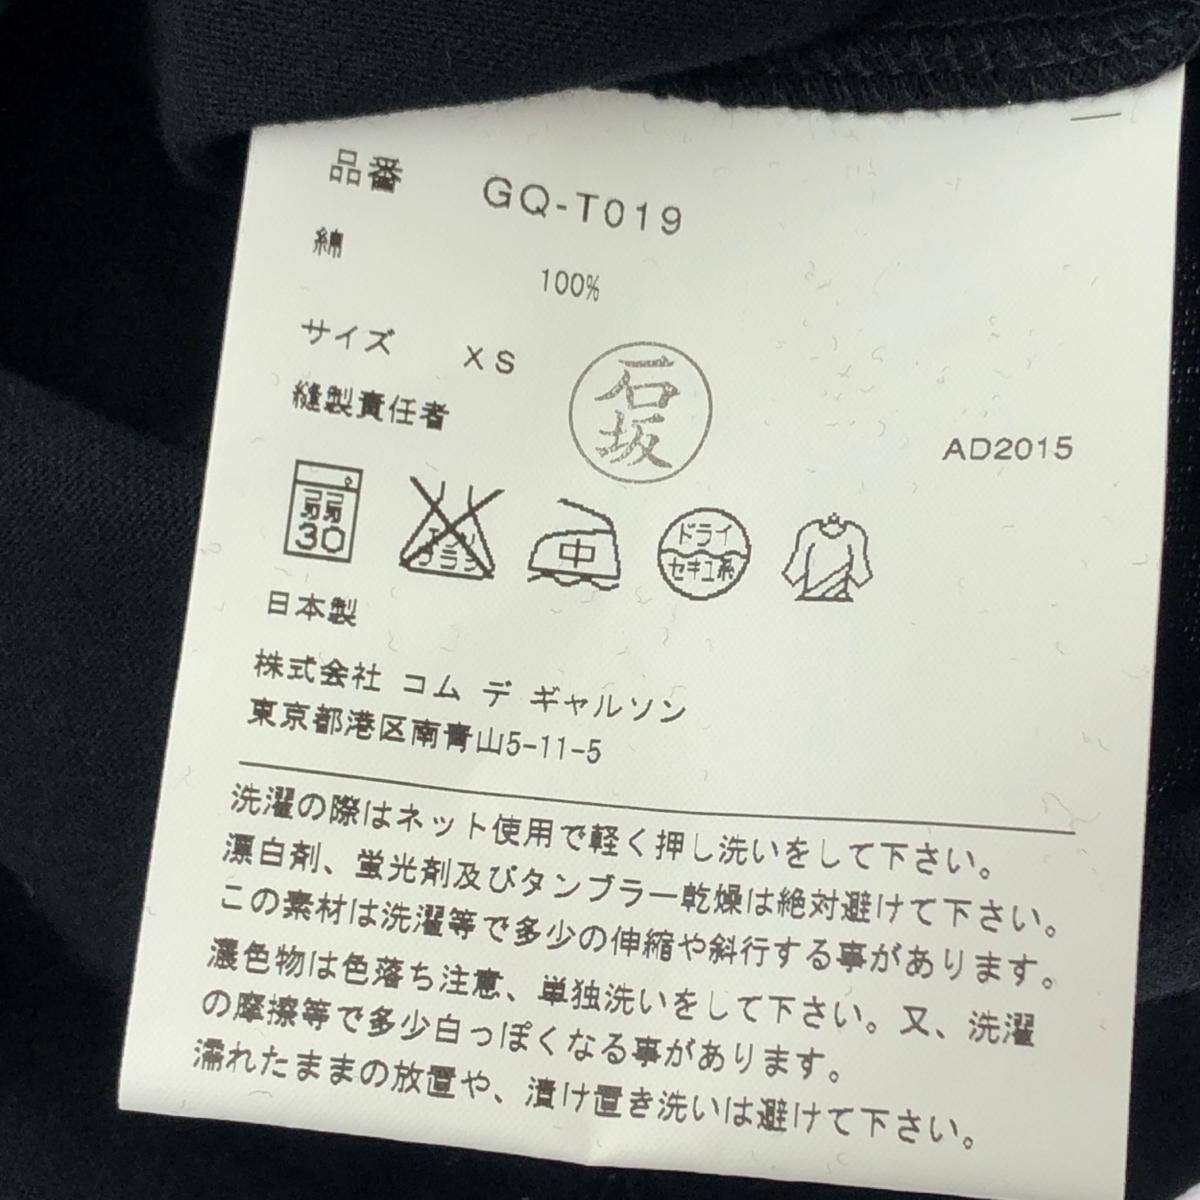 品番 GQ-T019
綿 100%
サイズ XS
縫製責任者 石坂
AD2015
弱 30
エンソ サラシ
中
ドライ セキユ系
日本製
株式会社 コム デ ギャルソン
東京都港区南青山5-11-5
洗濯の際はネット使用で軽く押し洗いをして下さい。
漂白剤、蛍光剤及びタンブラー乾燥は絶対避けて下さい。
この素材は洗濯等で多少の伸縮や斜行する事があります。
濃色物は色落ち注意、単独洗いをして下さい。又、洗濯
の摩擦等で多少白っぽくなる事があります。
濡れたままの放置や、漬け置き洗いは避けて下さい。